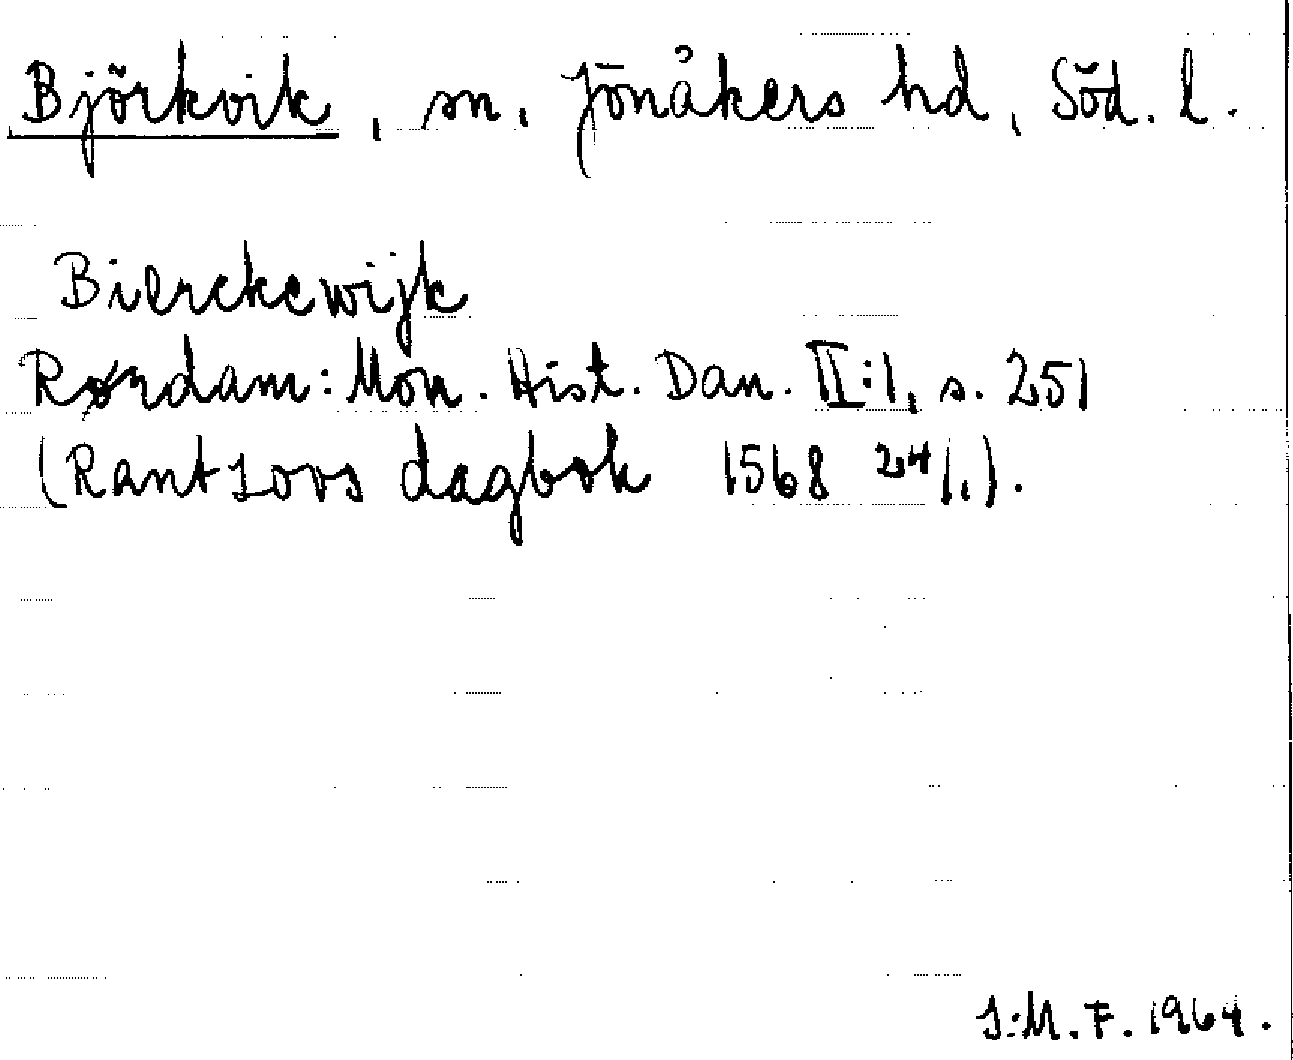 Björkvik, sn, Jönåkers hd, Söd. l.
Bierckewijk
Rørdam: Mon. Hist. Dan. II:1, s. 251
(Rantzovs dagbok 1568 24/1).
I:M.F. 1964.